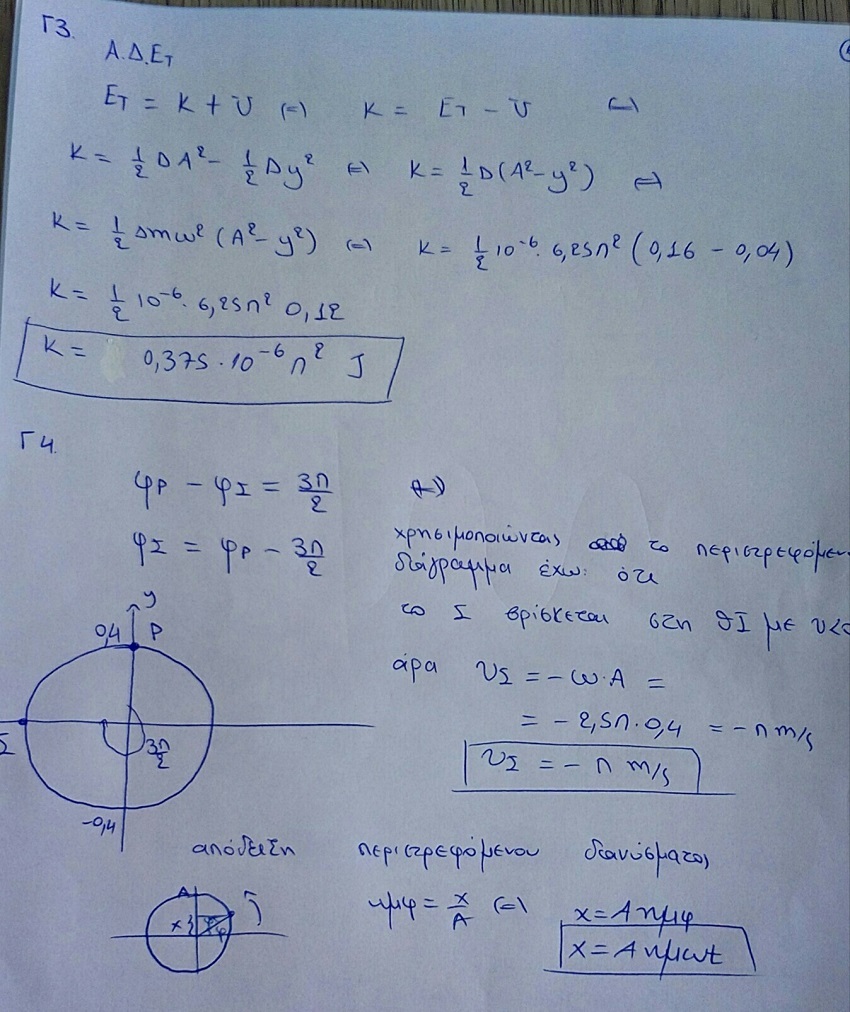 Γ3.
Α.Δ.Ε_T
E_T = K + U (=) K = E_T - U (=)
K = 1/2 DA² - 1/2 Dy² (=) K = 1/2 D(A² - y²) (=)
K = 1/2 Δmω² (A² - y²) (=) K = 1/2 10⁻⁶ · 6,25π² (0,16 - 0,04)
K = 1/2 10⁻⁶ · 6,25π² 0,12
K = 0,375 · 10⁻⁶ π² J
Γ4.
φ_P - φ_Σ = 3π/2 (=)
φ_Σ = φ_P - 3π/2
χρησιμοποιώντας το περιστρεφόμεν
διάγραμμα έχω: ότι
το Σ βρίσκεται στη ΘΙ με υ<0
άρα υ_Σ = -ω·A =
= -2,5π·0,4 = -π m/s
υ_Σ = -π m/s
y
0,4 P
Σ
3π/2
-0,4
απόδειξη περιστρεφόμενου διανύσματος
A
x
φ
ημφ = x/A (=) x = Α ημφ
x = Α ημωt